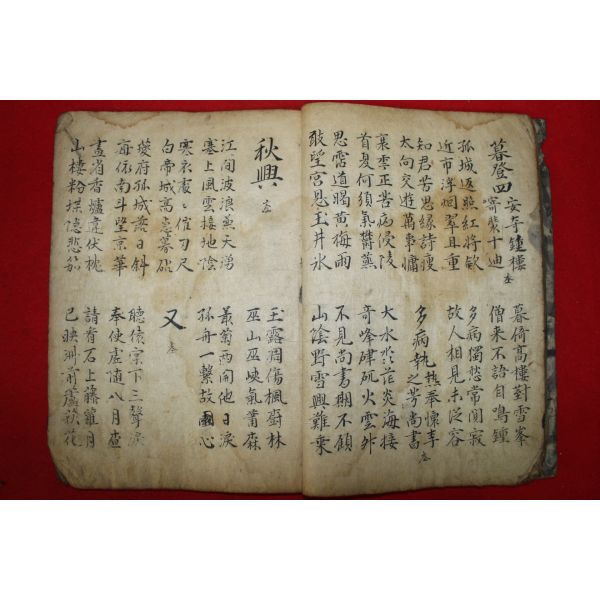 暮登四安寺鐘樓
寄裴十迪
暮倚高樓對雪峯
僧來不語自鳴鐘
孤城返照紅將歛
近市浮烟翠且重
多病獨愁常闃寂
故人相見未從容
知君苦思緣詩瘦
太向交遊萬事慵
多病執熱奉懷李
之芳尚書
衰年正苦病侵陵
首夏何須氣欝蒸
大水淼茫炎海接
奇峰硉矹火雲升
思霑道暍黃梅雨
敢望宮恩玉井氷
不見尚書期不顧
山陰野雪興難乘
秋興
玉露凋傷楓樹林
巫山巫峽氣蕭森
江間波浪兼天湧
塞上風雲接地陰
叢菊兩開他日淚
孤舟一繫故園心
寒衣處〻催刀尺
白帝城高急暮砧
又
夔府孤城落日斜
每依南斗望京華
聽猿實下三聲淚
奉使虛隨八月查
畫省香爐違伏枕
山樓粉堞隱悲笳
請看石上藤蘿月
已映洲前蘆荻花